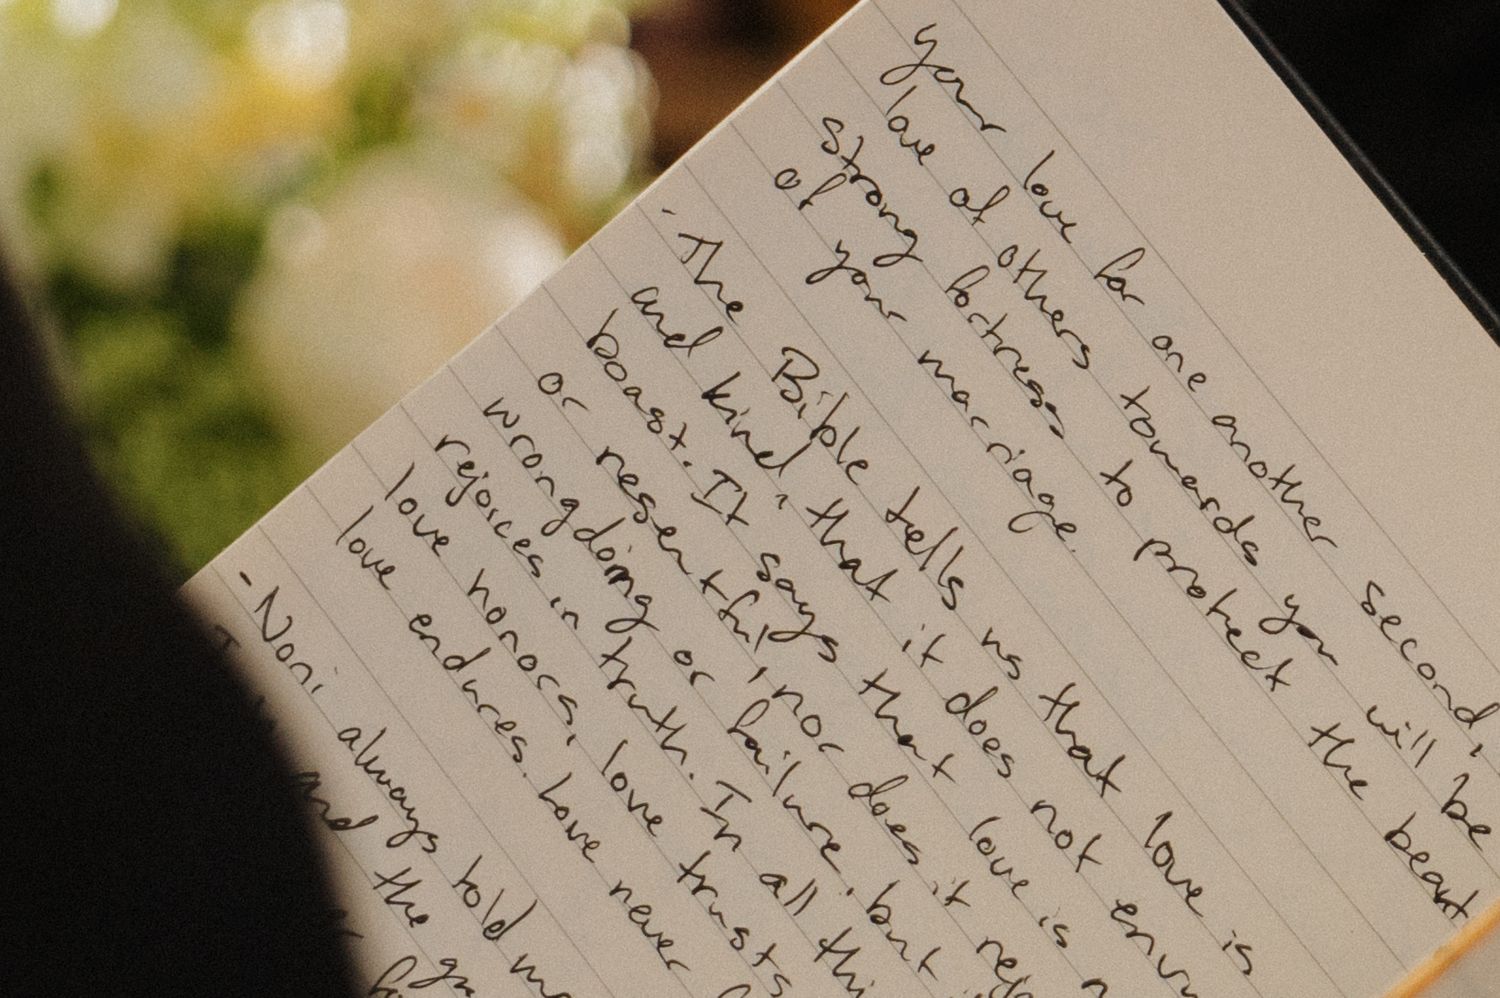 your love for one another second,
love of others towards you will be
strong fortress to protect the beaut
of your marriage.
- The Bible tells us that love is
and kind, that it does not envy
boast. It says that love is n
or resentful, nor does it rej
wrongdoing or failure, but
rejoices in truth. In all thi
love honors, love trusts
love endures. Love never f
- Noni always told me
I
and the